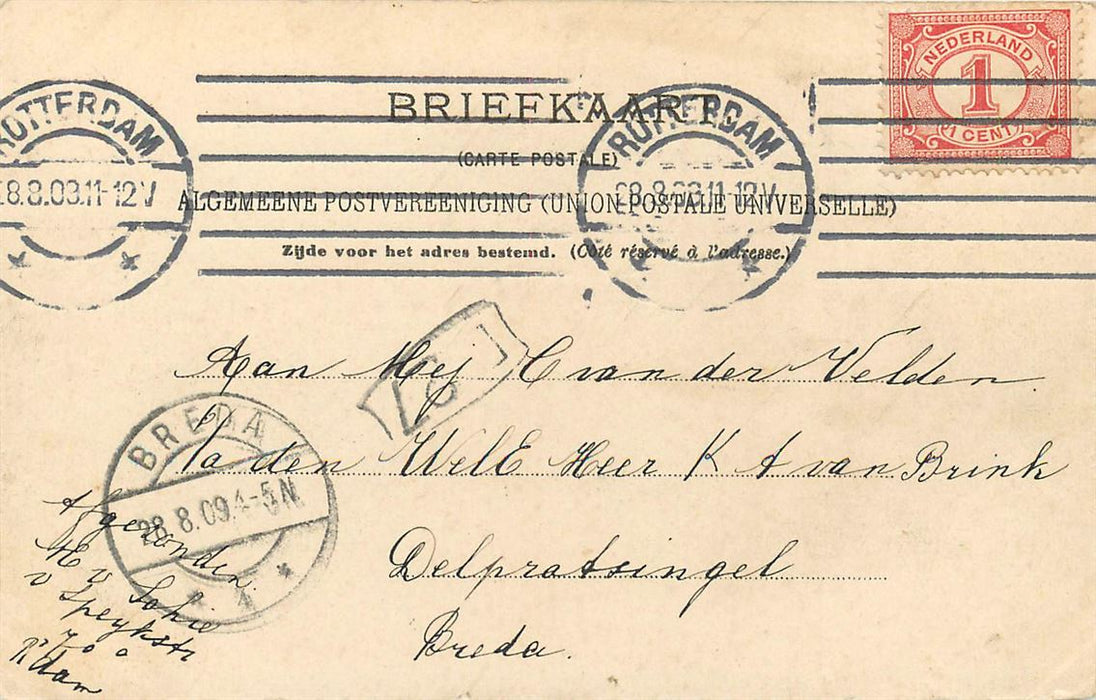 BRIEFKAART
(CARTE POSTALE)
ALGEMEENE POSTVEREENIGING (UNION POSTALE UNIVERSELLE)
Zijde voor het adres bestemd. (Côté réservé à l'adresse.)
NEDERLAND
1
1 CENT
ROTTERDAM
28.8.09.11-12V
ROTTERDAM
28.8.09.11-12V
Aan Mej C van der Velden
Va den WelE Heer K A van Brink
Delpratsingel
Breda.
BREDA
28.8.09.4-5N
Afgezonden
v Speykstr
R'dam